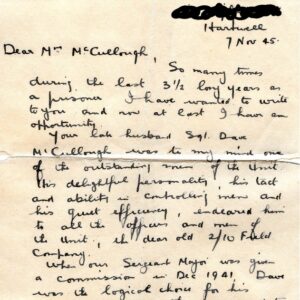 Hartwell
7 Nov 45.
Dear Mrs McCullough,
So many times
during the last 3½ long years as
a prisoner I have wanted to write
to you and now at last I have an
opportunity.
Your late husband Sgt. Dave
McCullough was to my mind one
of the outstanding men of the Unit.
His delightful personality, his tact
and ability in controlling men and
his quiet efficiency, endeared him
to all the officers and men of
the Unit, dear old 2/10 Field
Company.
When our Sergeant Major was given
a commission in Dec 1941, Dave
was the logical choice for his